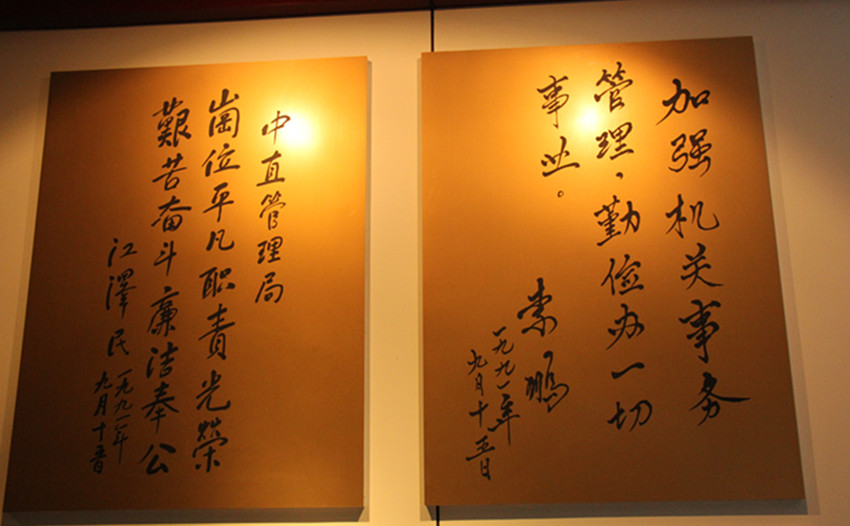 中直管理局
崗位平凡职責光榮
艱苦奋斗廉洁奉公
江澤民
一九九一年
九月十
加强机关事务
管理、勤俭办一切
事业。
李鹏
一九九一年
九月十五日